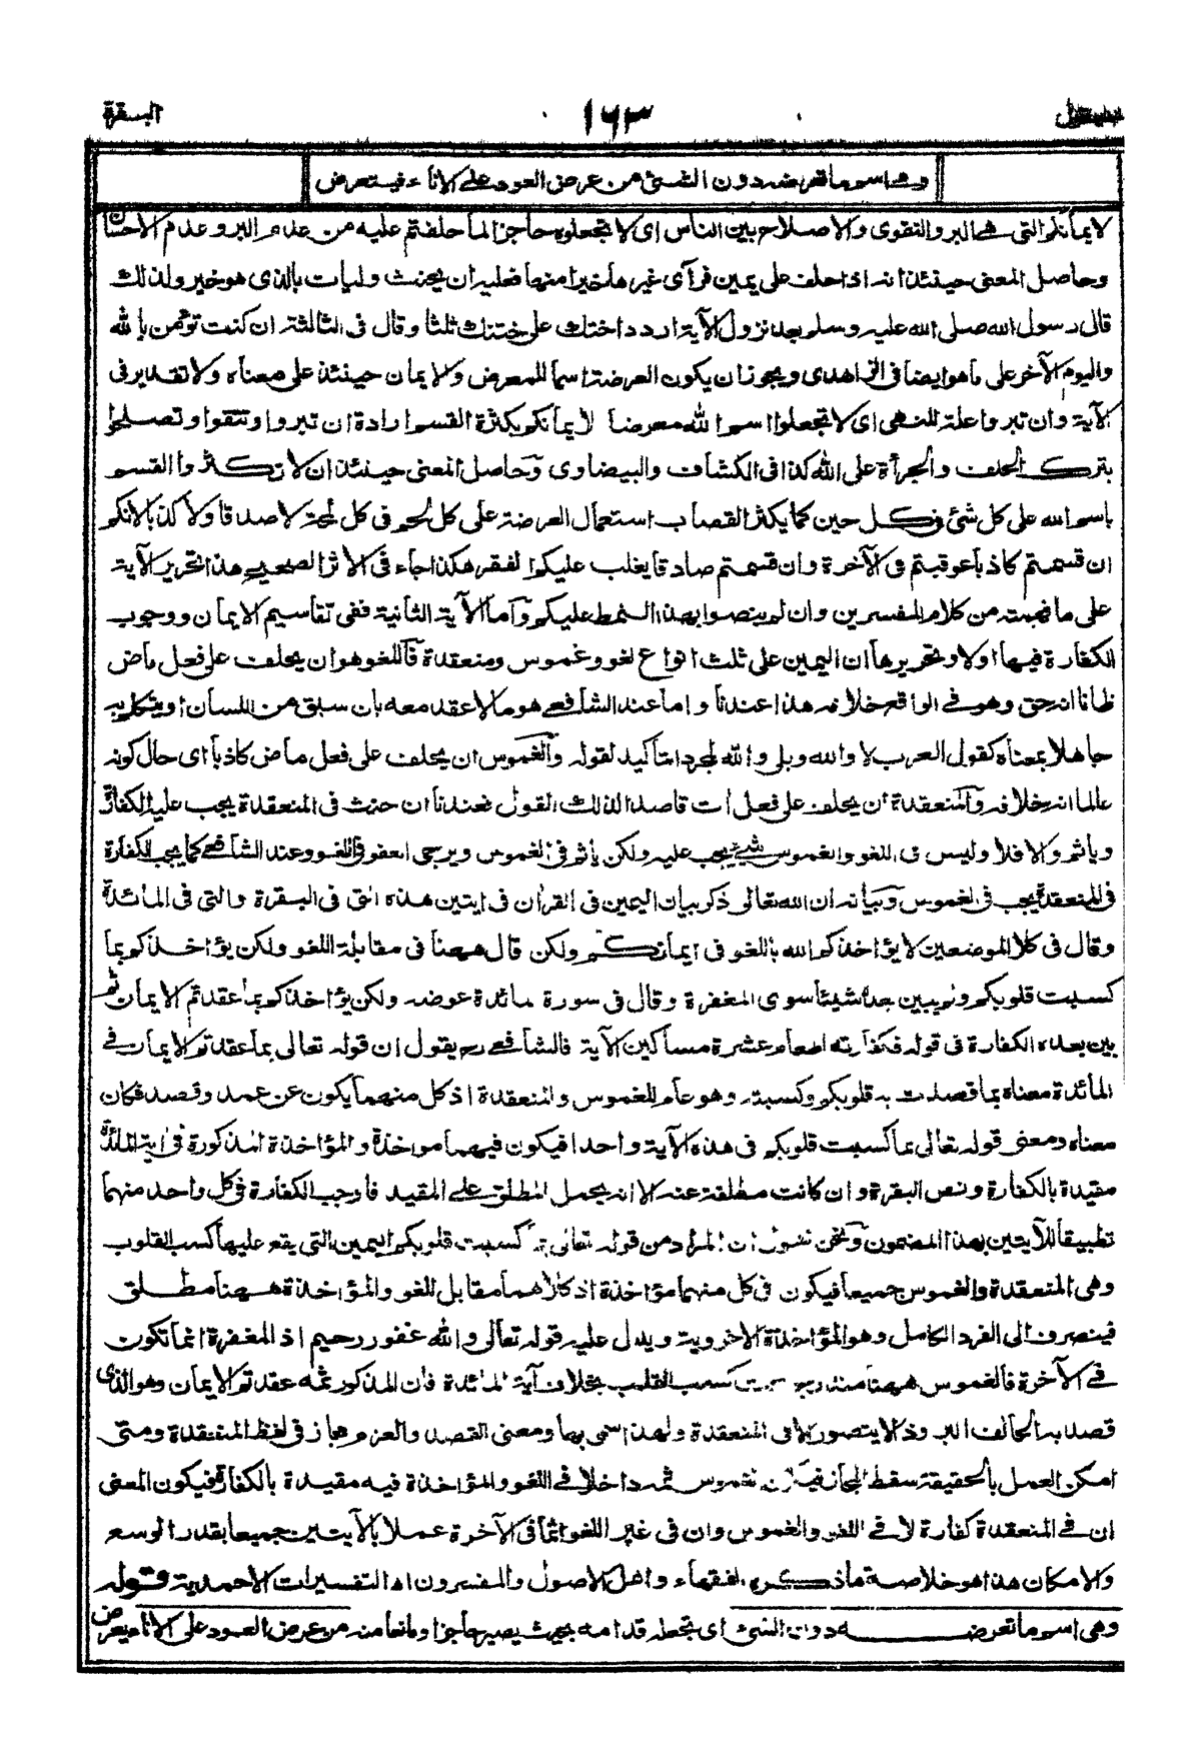 سيقول ١٦٣ البقرة
وهى اسم ما تعرضه دون الشئ من عرض العود على الاناء فيتعرض
لايمانكم التى هى البر والتقوى والاصلاح بين الناس اى لا تجعلوه حاجزا لما حلفتم عليه من عدم البر وعدم الاحسان
وحاصل المعنى حينئذ انه اذا حلف على يمين فرآى غيرها خيرا منها فعليه ان يحنث وليات بالذى هو خير ولذلك
قال رسول الله صلى الله عليه وسلم بعد نزول الآية اردد اختك على ختنك ثلثا وقال فى الثالثة ان كنت تؤمن بالله
واليوم الآخر على ما هو ايضا فى الزاهدى ويجوز ان يكون العرضة اسما للمعرض والايمان حينئذ على معناه ولا تقدير فى
الآية وان تبروا علة للنهى اى لا تجعلوا اسم الله معرضا لايمانكم بكثرة القسم ارادة ان تبروا وتتقوا وتصلحوا
بترك الحلف والجرأة على الله كذا فى الكشاف والبيضاوى وحاصل المعنى حينئذ ان لا تكثروا القسم
باسم الله على كل شئ فى كل حين كما يكثر القصاب استعمال العرضة على كل لحم فى كل لمحة لا صدقا ولا كذبا لانكم
ان قسمتم كاذبا عوقبتم فى الآخرة وان قسمتم صادقا يغلب عليكم الفقر هكذا جاء فى الاثر الصحيح هذا تحرير الآية
على ما فهمت من كلام المفسرين وان لم ينصوا بهذا النمط عليكم وآما الآية الثانية ففى تقاسيم الايمان ووجوب
الكفارة فيها اولا وتحريرها ان اليمين على ثلث انواع لغو وغموس ومنعقدة فاللغو هو ان يحلف على فعل ماض
ظانا انه حق وهو فى الواقع خلافه هذا عندنا واما عند الشافعى هو ما لا عقد معه بان سبق من اللسان او يتكلم به
جاهلا بمعناه كقول العرب لا والله وبلى والله لمجرد التأكيد لقوله والغموس ان يحلف على فعل ماض كاذبا اى حال كونه
عالما انه خلافه والمنعقدة ان يحلف على فعل آت قاصدا لذلك القول فعندنا ان حنث فى المنعقدة يجب عليه الكفارة
وياثم والا فلا وليس فى اللغو والغموس شئ يجب عليه ولكن يأثم فى الغموس ويرجى العفو فى اللغو وعند الشافعى كما يجب الكفارة
فى المنعقدة يجب فى الغموس وبيانه ان الله تعالى ذكر بيان اليمين فى القرآن فى ايتين هذه التى فى البقرة والتى فى المائدة
وقال فى كلا الموضعين لا يؤاخذكم الله باللغو فى ايمانكم ولكن قال ههنا فى مقابلة اللغو ولكن يؤاخذكم بما
كسبت قلوبكم ولم يبين بعده شيئا سوى المغفرة وقال فى سورة مائدة عوضه ولكن يؤاخذكم بما عقدتم الايمان ثم
بين بعده الكفارة فى قوله فكفارته اطعام عشرة مساكين الآية فالشافعى رح يقول ان قوله تعالى بما عقدتم الايمان فى
المائدة معناه بما قصدت به قلوبكم وكسبته وهو عام للغموس والمنعقدة اذ كل منهما يكون عن عمد وقصد فكان
معناه ومعنى قوله تعالى بما كسبت قلوبكم فى هذه الآية واحدا فيكون فيهما مواخذة والمؤاخذة المذكورة فى اية المائدة
مقيدة بالكفارة ونص البقرة وان كانت مطلقة عنه الا انه يحمل المطلق على المقيد فاوجب الكفارة فى كل واحد منهما
تطبيقا للآيتين بهذا المضمون ونحن نقول ان المراد من قوله تعالى بما كسبت قلوبكم اليمين التى يقع عليها كسب القلوب
وهى المنعقدة والغموس جميعا فيكون فى كل منهما مؤاخذة اذ كلاهما مقابل للغو والمؤاخذة ههنا مطلق
فينصرف الى الفرد الكامل وهو المؤاخذة الاخروية ويدل عليه قوله تعالى والله غفور رحيم اذ المغفرة انما تكون
فى الآخرة فالغموس ههنا مندرجة تحت كسب القلب بخلاف آية المائدة فان المذكور ثمه عقدتم الايمان وهو الذى
قصد به الحالف البر وذا لا يتصور الا فى المنعقدة ولهذا سمى بها ومعنى القصد والعزم مجاز فى لفظ المنعقدة ومتى
امكن العمل بالحقيقة سقط المجاز فيكون الغموس ثمه داخلا فى اللغو والمؤاخذة فيه مقيدة بالكفارة فيكون المعنى
ان فى المنعقدة كفارة لا فى اللغو والغموس وان فى غير اللغو اثما فى الآخرة عملا بالآيتين جميعا بقدر الوسع
والامكان هذا هو خلاصة ما ذكره الفقهاء واهل الاصول والمفسرون اه التفسيرات الاحمدية قوله
وهى اسم ما تعرضه دون الشئ اى تجعله قدامه بحيث يصير حاجزا ومانعا منه من عرض العود على الاناء يعرض